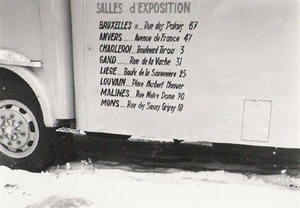 SALLES d'EXPOSITION
BRUXELLES .. Rue des Palais 67
ANVERS ..... Avenue de France 47
CHARLEROI.. Boulevard Tirou 3
GAND ....... Rue de la Vache 31
LIEGE... Boulv. de la Sauvenière 25
LOUVAIN.... Place Herbert Hoover
MALINES .. Rue Notre Dame 70
MONS..... Rue des Sœurs Grises 10